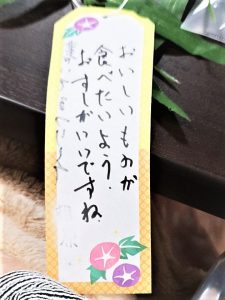 おいしいものが
食べたいよう.
おすしがいいですね.